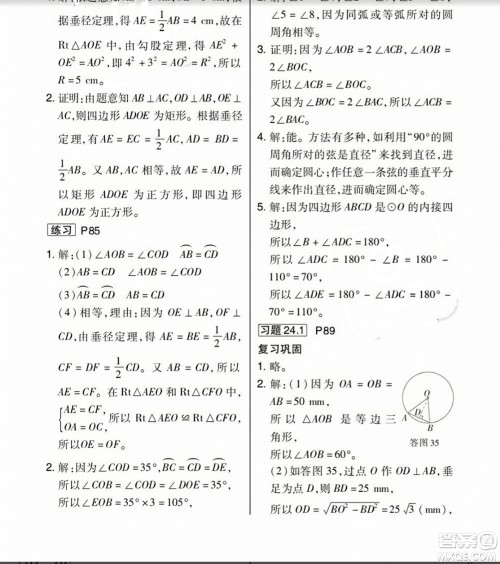 据垂径定理，得 AE = 1/2 AB = 4 cm，故在
Rt△AOE 中，由勾股定理，得 AE² +
EO² = AO²，所以 4² + 3² = AO² = R²，所以
R = 5 cm。
2. 证明：由题意知 AB⊥AC，OD⊥AB，OE⊥
AC，则四边形 ADOE 为矩形。根据垂径
定理，有 AE = EC = 1/2 AC，AD = BD =
1/2 AB。又 AB = AC，故 AE = AD，所
以矩形 ADOE 为正方形，即四边形
ADOE 为正方形。
练习 P85
1. 解：(1) ∠AOB = ∠COD ⌒AB = ⌒CD
(2) AB = CD ∠AOB = ∠COD
(3) ⌒AB = ⌒CD AB = CD
(4) 相等，理由：因为 OE⊥AB，OF⊥
CD，由垂径定理，得 AE = BE = 1/2 AB，
CF = DF = 1/2 CD。又 AB = CD，所以
AE = CF。在 Rt△AEO 和 Rt△CFO 中，
{AE = CF，
OA = OC，
所以 Rt△AEO ≌ Rt△CFO，
所以 OE = OF。
2. 解：因为∠COD = 35°，⌒BC = ⌒CD = ⌒DE，
所以∠BOC = ∠COD = ∠DOE = 35°，
所以∠EOB = 35° × 3 = 105°，
∠5 = ∠8，因为同弧或等弧所对的圆
周角相等。
3. 证明：因为∠AOB = 2∠ACB，∠BOC =
2∠BAC，∠AOB = 2∠BOC，
所以∠ACB = ∠BOC。
又因为∠BOC = 2∠BAC，所以∠ACB =
2∠BAC。
4. 解：能。方法有多种，如利用“90°的圆
周角所对的弦是直径”来找出直径，进
而确定圆心；作任意一条弦的垂直平分
线来找出直径，进而确定圆心等。
5. 解：因为四边形 ABCD 是⊙O 的内接四
边形，
所以∠B + ∠ADC = 180°，
所以∠ADC = 180° - ∠B = 180° -
110° = 70°。
所以∠ADE = 180° - ∠ADC = 180° -
70° = 110°。
习题 24.1 P89
复习巩固
1. 略。
2. 解：(1) 因为 OA = OB =
AB = 50 mm，
所以 △AOB 是等边三
角形，
所以∠AOB = 60°。
O
A
D
B
答图 35
(2) 如答图 35，过点 O 作 OD⊥AB，垂
足为点 D，则 BD = 25 mm，
所以 OD = √(BO² - BD²) = 25√3 (mm)，
答案圈
MXQE.COM